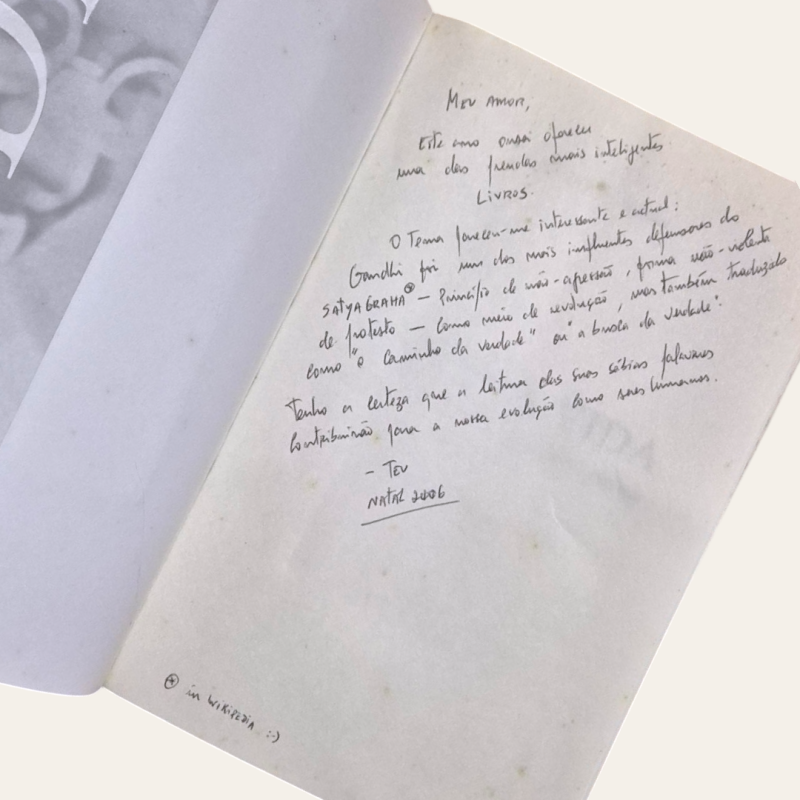 D
MEU AMOR,
Este ano ousei oferecer
uma das prendas mais inteligentes
LIVROS.
O Tema pareceu-me interessante e actual:
Gandhi foi um dos mais influentes defensores do
SATYAGRAHA⊛ — Princípio de não-agressão, forma não-violenta
de protesto — como meio de revolução, mas também traduzido
como "o caminho da verdade" ou "a busca da verdade".
Tenho a certeza que a leitura das suas sábias palavras
contribuirão para a nossa evolução como seres humanos.
- TEU
NATAL 2006
⊛ in WIKIPEDIA :-)